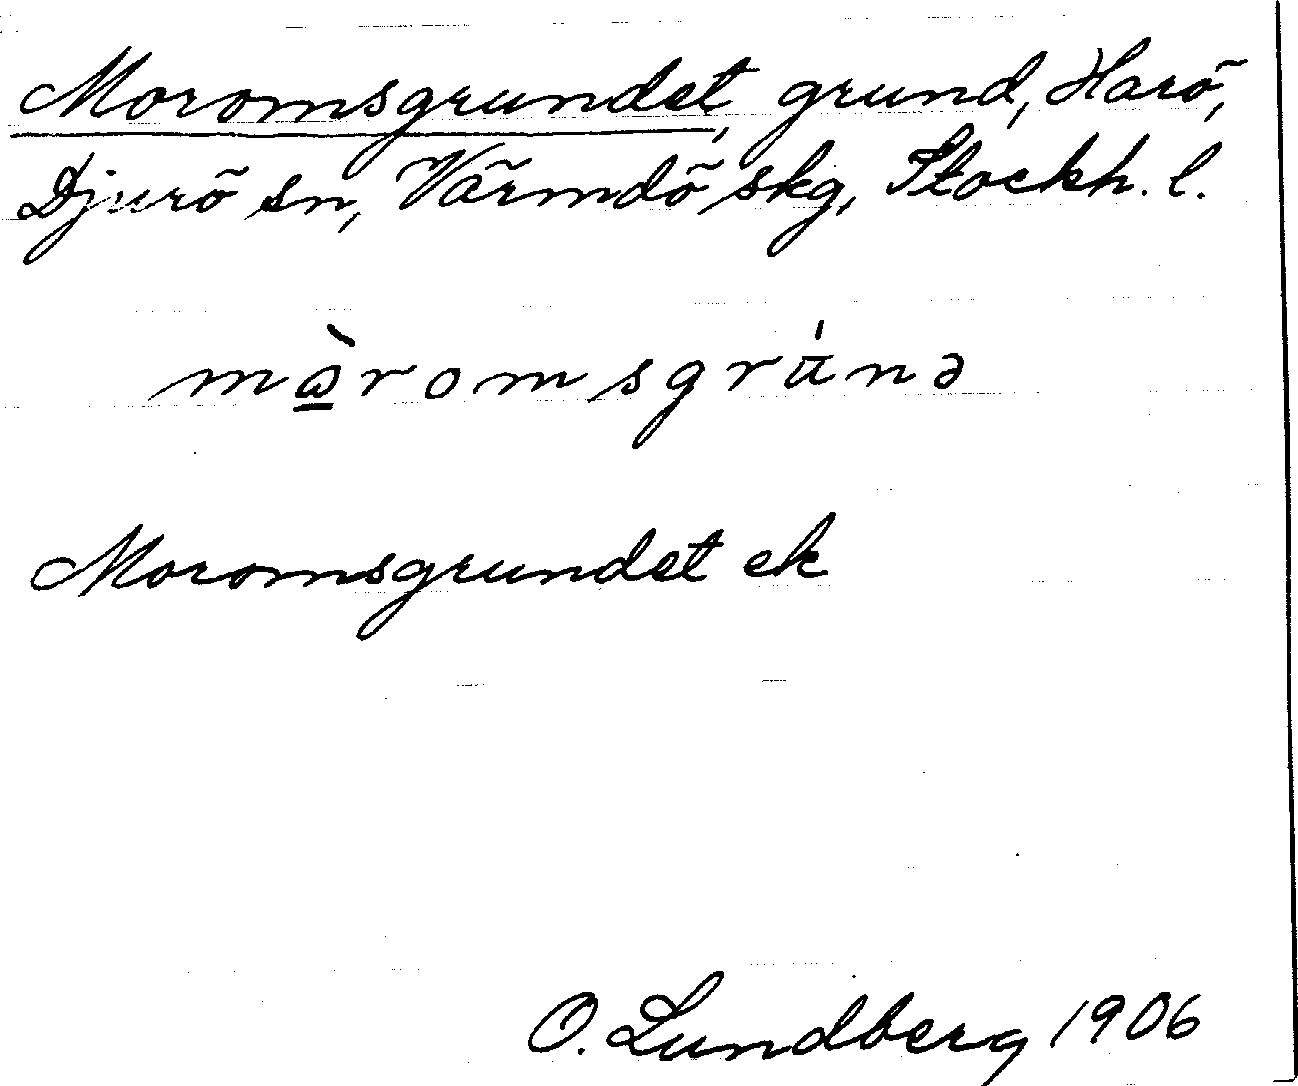 Moromsgrundet, grund, Harö,
Djurö sn, Värmdö skg, Stockh. l.
mὼ̲romsgrú̄nə
Moromsgrundet ek
O. Lundberg 1906